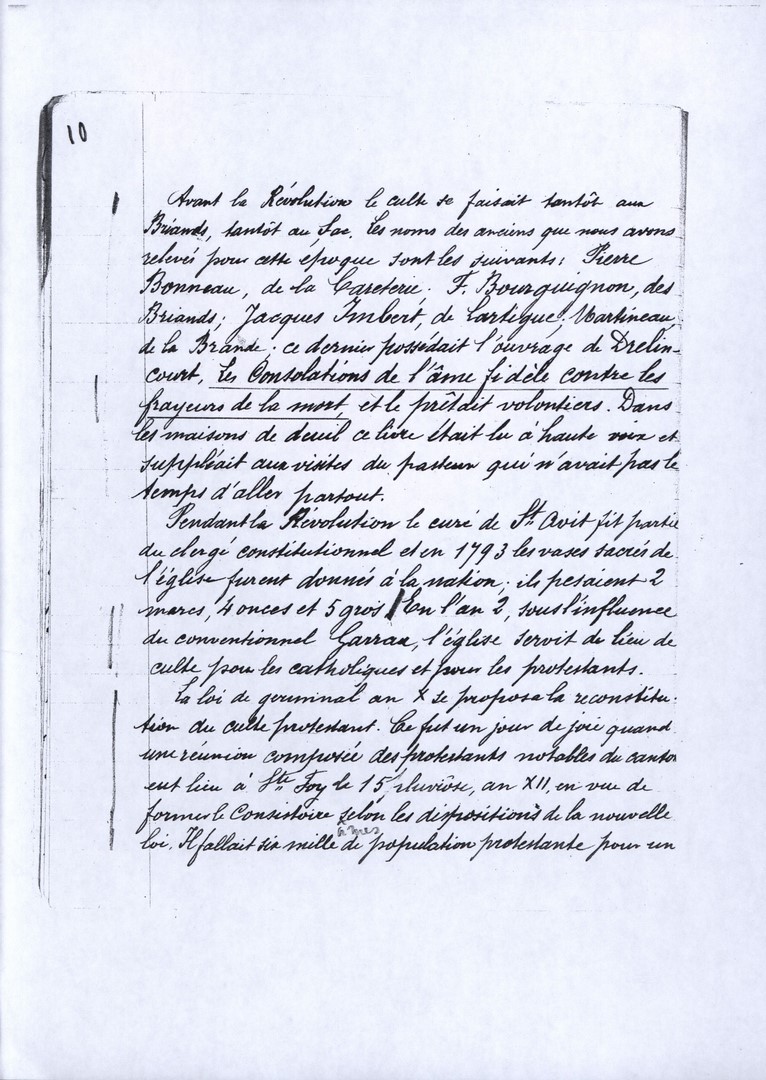 10
Avant la Révolution le culte se faisait tantôt aux
Briands, tantôt au Sac. Les noms des anciens que nous avons
relevés pour cette époque sont les suivants: Pierre
Bonneau, de la Careterie. F. Bourguignon, des
Briands; Jacques Imbert, de Lartigue; Martineau,
de la Brande; ce dernier possédait l'ouvrage de Drelin-
court, Les Consolations de l'âme fidèle contre les
frayeurs de la mort, et le prêtait volontiers. Dans
les maisons de deuil ce livre était lu à haute voix et
suppléait aux visites du pasteur qui n'avait pas le
temps d'aller partout.
Pendant la Révolution le curé de St. Avit fit partie
du clergé constitutionnel et en 1793 les vases sacrés de
l'église furent donnés à la nation; ils pesaient 2
marcs, 4 onces et 5 gros. / En l'an 2, sous l'influence
du conventionnel Garrau, l'église servit de lieu de
culte pour les catholiques et pour les protestants.
La loi de germinal an X se proposa la reconstitu-
tion du culte protestant. Ce fut un jour de joie quand
une réunion composée des protestants notables du canton
eut lieu à Ste Foy le 15 pluviôse, an XII, en vue de
former le Consistoire selon les dispositions de la nouvelle
âmes
loi. Il fallait six mille de population protestante pour un